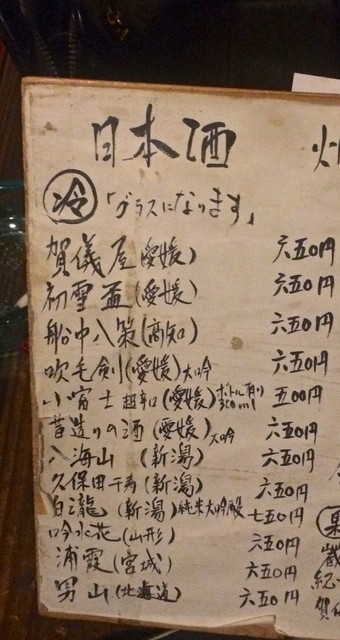 日本酒
冷 「グラスになります」
賀儀屋(愛媛) 六五0円
初雪盃(愛媛) 六五0円
船中八策(高知) 六五0円
吹毛剣(愛媛)大吟 六五0円
小富士 超辛口(愛媛)ボトル有り 300ml 五00円
昔造りの酒(愛媛)大吟 六五0円
八海山 (新潟) 六五0円
久保田千寿(新潟) 六五0円
白瀧 (新潟)純米大吟醸 七五0円
吟水花(山形) 六五0円
浦霞(宮城) 六五0円
男山(北海道) 六五0円